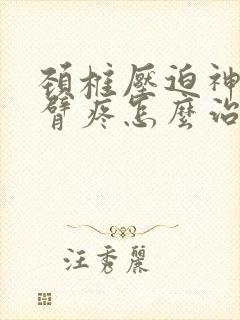 頚椎壓迫神
臂疼怎麼治
汪秀麗